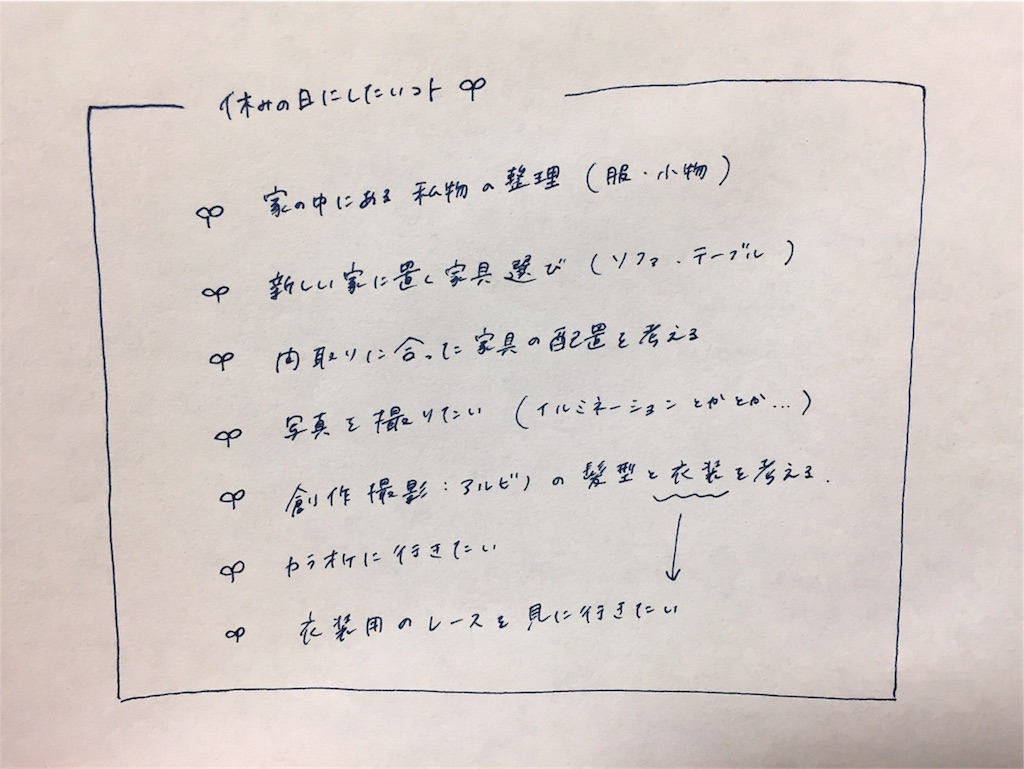 休みの日にしたいコト
家の中にある私物の整理 (服・小物)
新しい家に置く家具選び (ソファ・テーブル)
間取りに合った家具の配置を考える
写真を撮りたい (イルミネーションとかとか...)
創作撮影:アルビノの髪型と衣装を考える.
カラオケに行きたい
衣装用のレースを見に行きたい